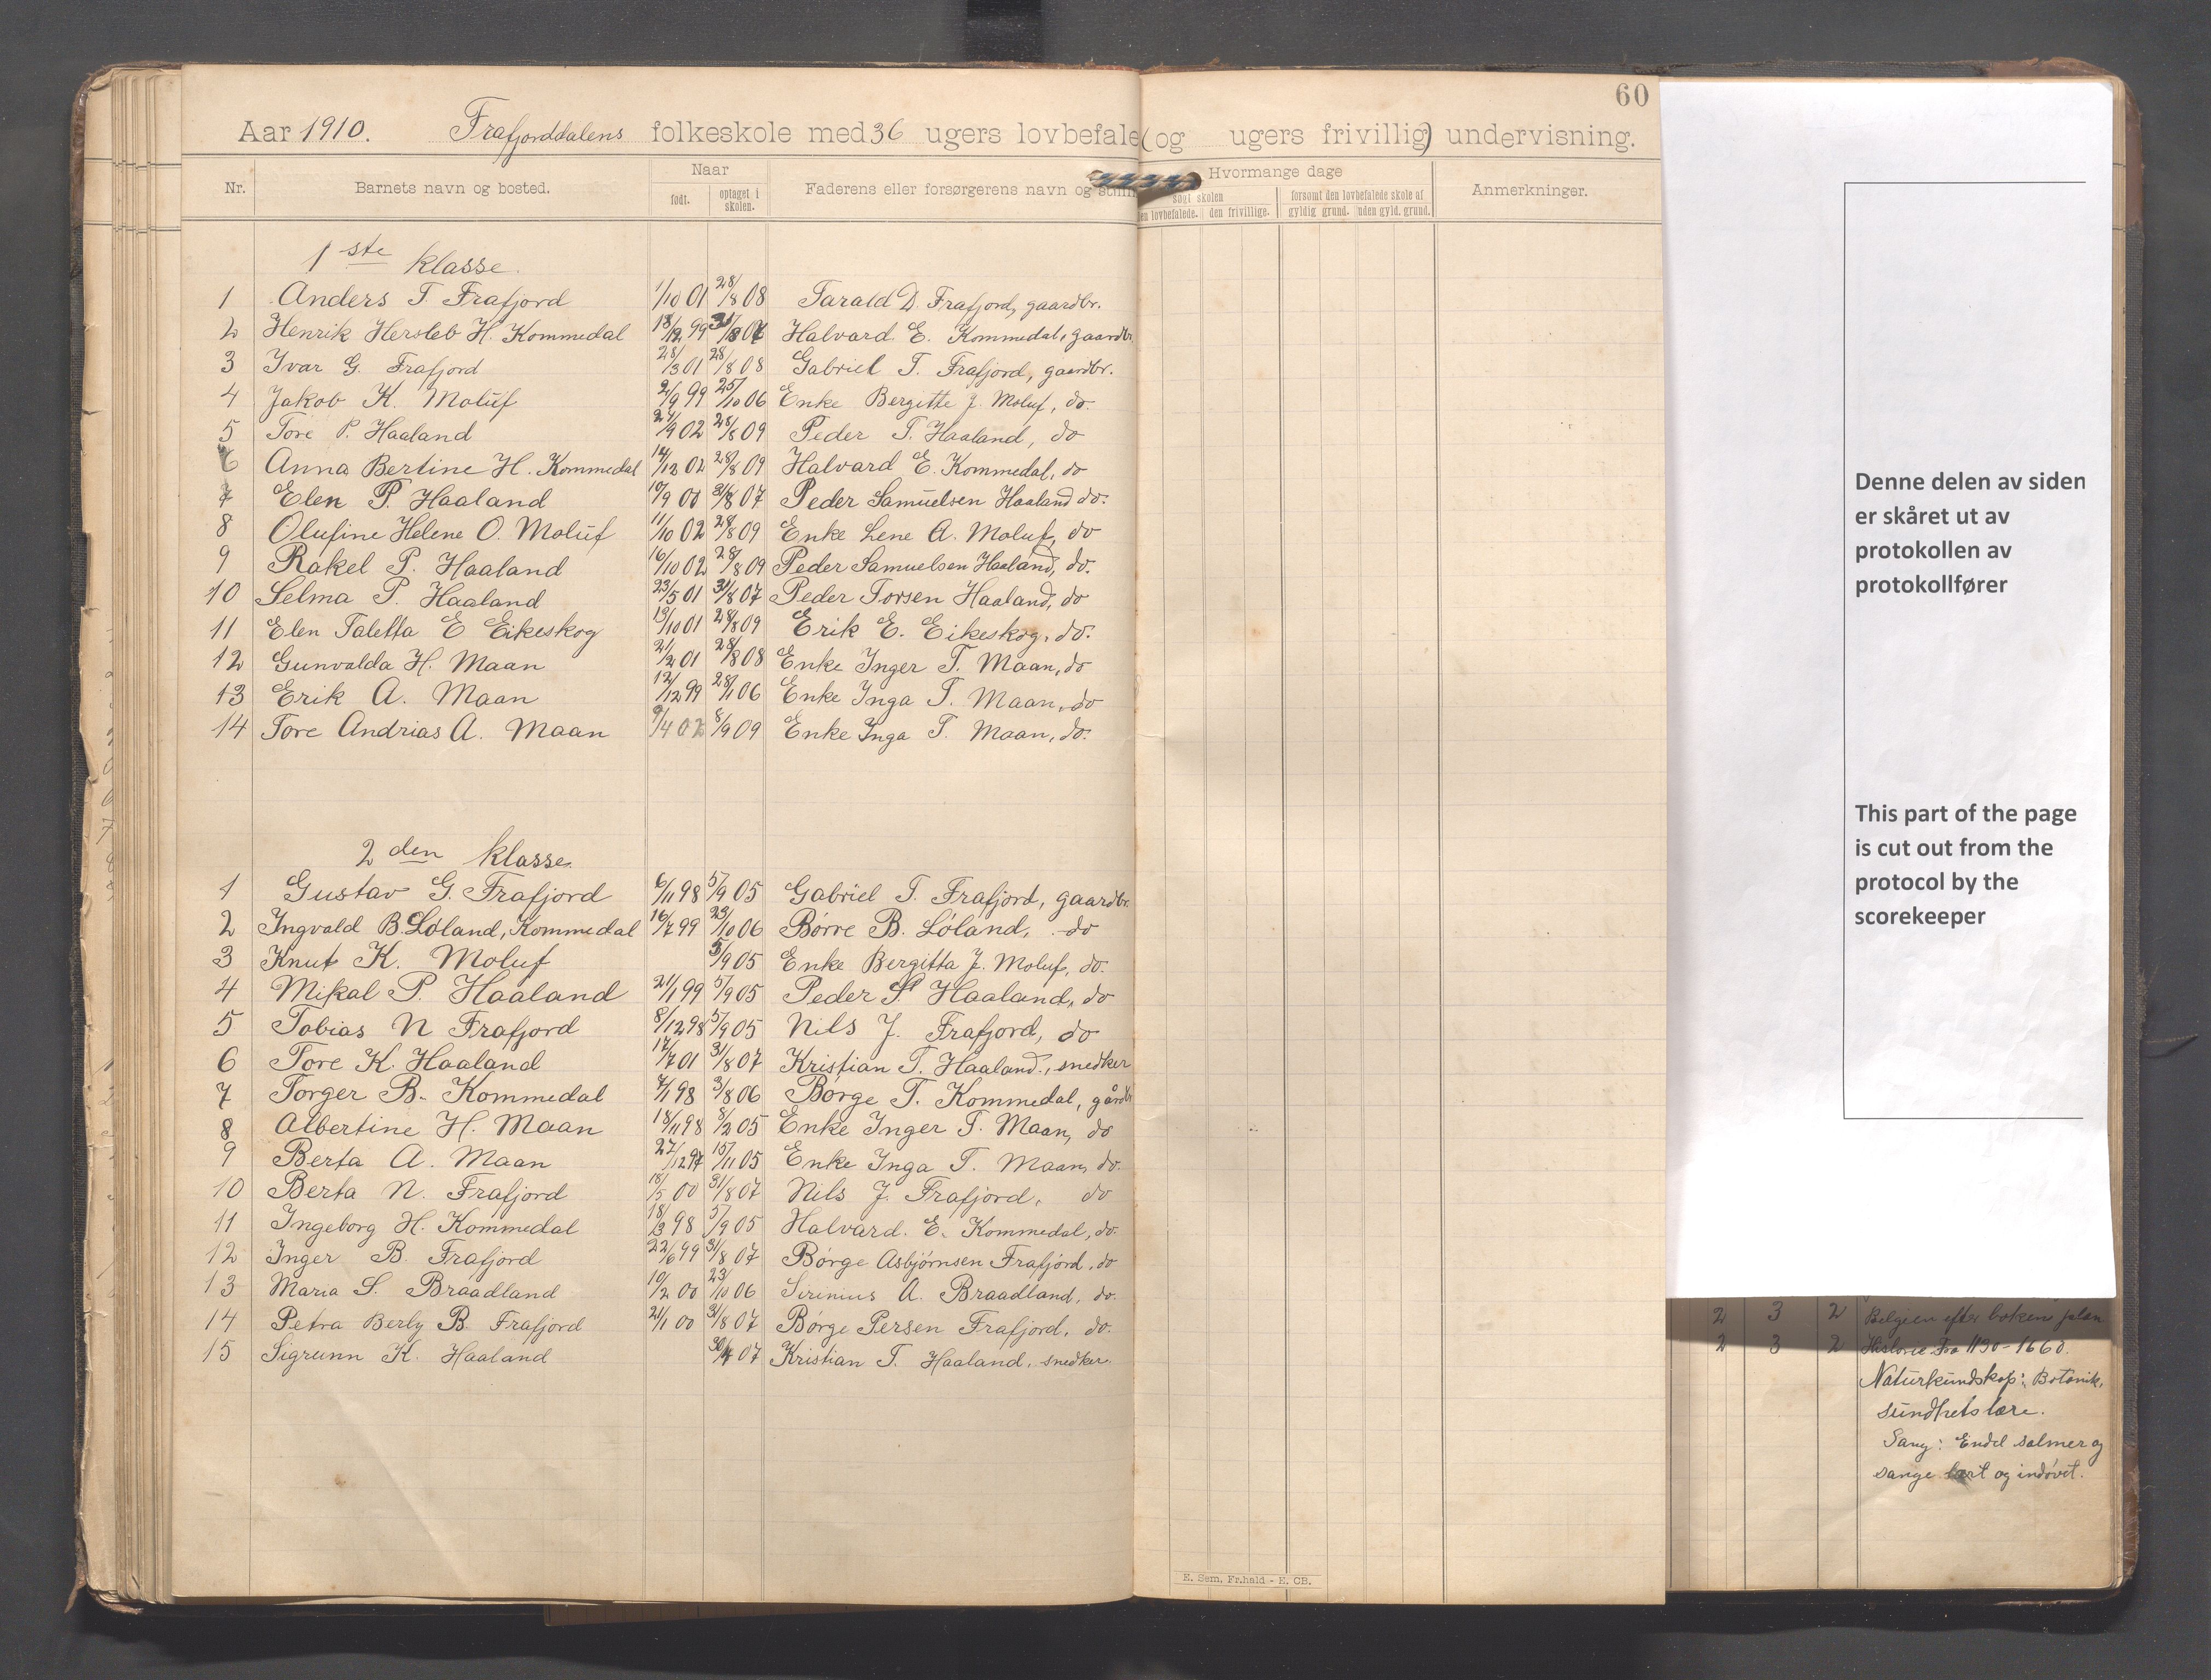 60
Aar 1910. Frafjorddalens folkeskole med 36 ugers lovbefale (og ugers frivillig) undervisning.
Nr. Barnets navn og bosted. Naar født. optaget i skolen. Faderens eller forsørgerens navn og Hvormange dage søgt skolen den lovbefalede. den frivillige. forsømt den lovbefalede skole af gyldig grund. uden gyld. grund. Anmerkninger.
1ste klasse.
1 Anders T. Frafjord 1/10 01 28/8 08 Tarald D. Frafjord, gaardbr.
2 Henrik Hersleb H. Kommedal 18/12 99 Halvard E. Kommedal, gaardbr
3 Ivar G. Frafjord 28/3 01 28/8 08 Gabriel T. Frafjord, gaardbr.
4 Jakob K. Moluf 2/9 99 25/10 06 Enke Bergitte J. Moluf, do.
5 Tore P. Haaland 27/9 02 28/8 09 Peder T. Haaland, do
6 Anna Bertine H. Kommedal 14/12 02 28/8 09 Halvard E. Kommedal, do
7 Elen P. Haaland 10/9 00 31/8 07 Peder Samuelsen Haaland do.
8 Olufine Helene O. Moluf 11/10 02 28/8 09 Enke Lene A. Moluf, do
9 Rakel P. Haaland 16/10 02 28/8 09 Peder Samuelsen Haaland, do.
10 Selma P. Haaland 23/5 01 31/8 07 Peder Torsen Haaland, do
11 Elen Taletta E Eikeskog 13/10 01 28/8 09 Erik E. Eikeskog, do.
12 Gunvalda H. Maan 21/2 01 28/8 08 Enke Inger T. Maan, do
13 Erik A. Maan 12/12 99 28/1 06 Enke Inga T. Maan, do
14 Tore Andrias A. Maan 9/4 02 8/9 09 Enke Inga T. Maan, do.
2den klasse.
1 Gustav G. Frafjord 6/11 98 5/9 05 Gabriel T. Frafjord, gaardbr.
2 Ingvald B. Løland, Kommedal 16/7 99 23/10 06 Børre B. Løland, do
3 Knut K. Moluf 5/9 05 Enke Bergitta J. Moluf, do.
4 Mikal P. Haaland 21/1 99 5/9 05 Peder S. Haaland, do
5 Tobias N Frafjord 8/12 98 5/9 05 Nils J. Frafjord, do
6 Tore K. Haaland 17/7 01 31/8 07 Kristian T. Haaland., snedker
7 Torger B. Kommedal 7/1 98 3/8 06 Børge T. Kommedal, gårdbr
8 Albertine H. Maan 18/11 98 8/2 05 Enke Inger T. Maan, do
9 Berta A. Maan 27/12 97 15/11 05 Enke Inga T. Maan, do.
10 Berta N. Frafjord 18/5 00 31/8 07 Nils J. Frafjord, do
11 Ingeborg H. Kommedal 18/3 98 5/9 05 Halvard. E. Kommedal, do.
12 Inger B. Frafjord 22/6 99 31/8 07 Børge Asbjørnsen Frafjord, do
13 Maria S. Braadland 10/2 00 23/10 06 Sirinius A. Braadland, do.
14 Petra Berly B. Frafjord 21/1 00 31/8 07 Børge Persen Frafjord, do.
15 Sigrunn K. Haaland 07 Kristian T. Haaland, snedker.
E. Sem, Fr.hald - E. CB.
Denne delen av siden
er skåret ut av
protokollen av
protokollfører
This part of the page
is cut out from the
protocol by the
scorekeeper
2 3 2 Belgien efter bokens plan
2 3 2 Historie Fra 1130-1660.
Naturkundskap: Botanik,
sundhetslære.
Sang: Endel salmer og
sange lært og indøvet.